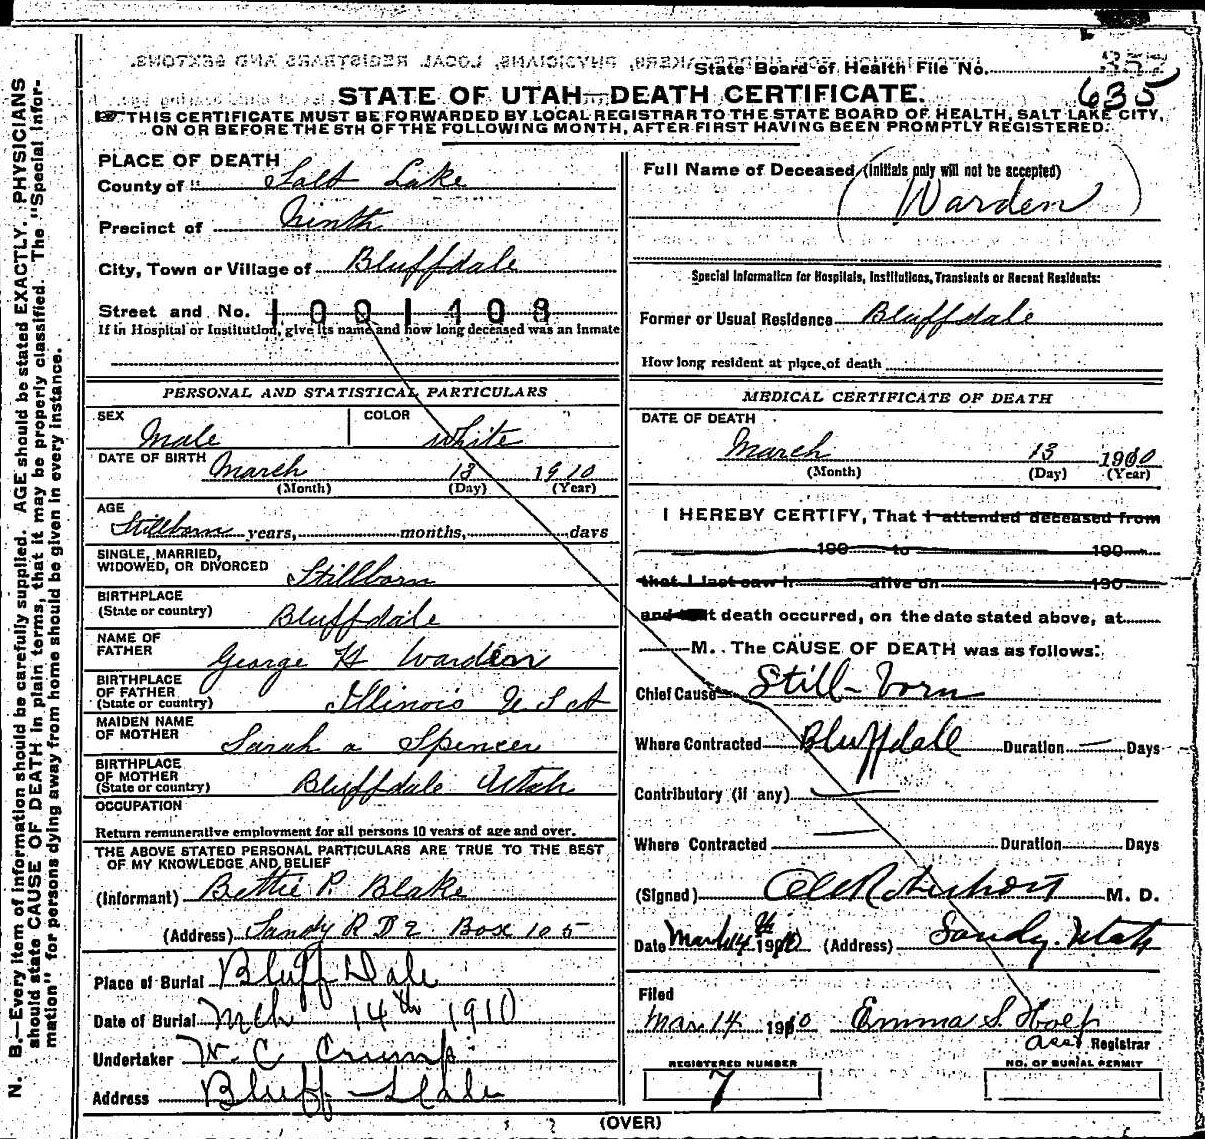 State Board of Health File No. 352
635
STATE OF UTAH—DEATH CERTIFICATE.
THIS CERTIFICATE MUST BE FORWARDED BY LOCAL REGISTRAR TO THE STATE BOARD OF HEALTH, SALT LAKE CITY,
ON OR BEFORE THE 5TH OF THE FOLLOWING MONTH, AFTER FIRST HAVING BEEN PROMPTLY REGISTERED.
N. B.—Every item of information should be carefully supplied. AGE should be stated EXACTLY. PHYSICIANS
should state CAUSE OF DEATH in plain terms, that it may be properly classified. The "Special Infor-
mation" for persons dying away from home should be given in every instance.
PLACE OF DEATH
County of Salt Lake
Precinct of Ninth
City, Town or Village of Bluffdale
Street and No. 1001408
If in Hospital or Institution, give its name and how long deceased was an inmate
PERSONAL AND STATISTICAL PARTICULARS
SEX Male COLOR White
DATE OF BIRTH March 13 1910
(Month) (Day) (Year)
AGE
Stillborn years, months, days
SINGLE, MARRIED,
WIDOWED, OR DIVORCED Stillborn
BIRTHPLACE
(State or country) Bluffdale
NAME OF
FATHER George H Warden
BIRTHPLACE
OF FATHER
(State or country) Illinois U S A
MAIDEN NAME
OF MOTHER Sarah a Spencer
BIRTHPLACE
OF MOTHER
(State or country) Bluffdale Utah
OCCUPATION
Return remunerative employment for all persons 10 years of age and over.
THE ABOVE STATED PERSONAL PARTICULARS ARE TRUE TO THE BEST
OF MY KNOWLEDGE AND BELIEF
(Informant) Bettie P. Blake
(Address) Sandy R D 2 Box 105
Place of Burial Bluff Dale
Date of Burial Mch 14th 1910
Undertaker W. C Crump
Address Bluff Dale
Full Name of Deceased (Initials only will not be accepted)
(Warden)
Special Information for Hospitals, Institutions, Transients or Recent Residents:
Former or Usual Residence Bluffdale
How long resident at place of death
MEDICAL CERTIFICATE OF DEATH
DATE OF DEATH
March 13 1910
(Month) (Day) (Year)
I HEREBY CERTIFY, That I attended deceased from
190 to 190
that I last saw h alive on 190
and that death occurred, on the date stated above, at
M. The CAUSE OF DEATH was as follows:
Chief Cause Still-born
Where Contracted Bluffdale Duration — Days
Contributory (if any) —
Where Contracted — Duration Days
(Signed) M. D.
Date March 14th 1910 (Address) Sandy. Utah
Filed
Mar 14 1910 Emma S.
Asst Registrar
REGISTERED NUMBER
7
NO. OF BURIAL PERMIT
(OVER)